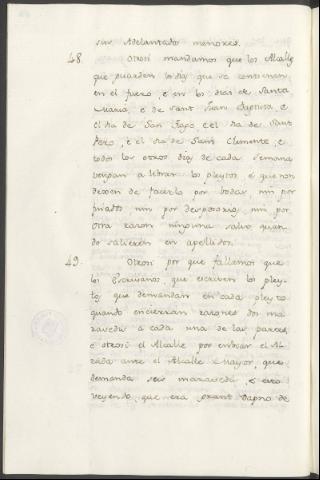 sin Adelantado menores.
48. Otrosi mandamos que los Alcalles
que guarden los dias que se contienen
en el fuero, e en los dias de Santa
Maria, e de Sant Juan Baptista, e
el dia de San Yago, e el dia de Sant
Pero, e el dia de Sant Clemente, e
todos los otros dias de cada semana
vengan a librar los pleytos, e que non
dexen de facerlo por bodas nin por
nin por desposorios, nin por
otra razon ninguna salvo quan-
do salieren en apellido.
49. Otrosi por que fallemos que
los Escrivanos que escriben los pley-
tos que demandan en cada pleyto
quando encierran razones dos ma-
ravedis a cada una de las partes,
e otrosi el Alcalle por embiar el Al-
zada ante el Alcalle Mayor, que
demanda seis maravedis, e
veyendo que era grant dapno de